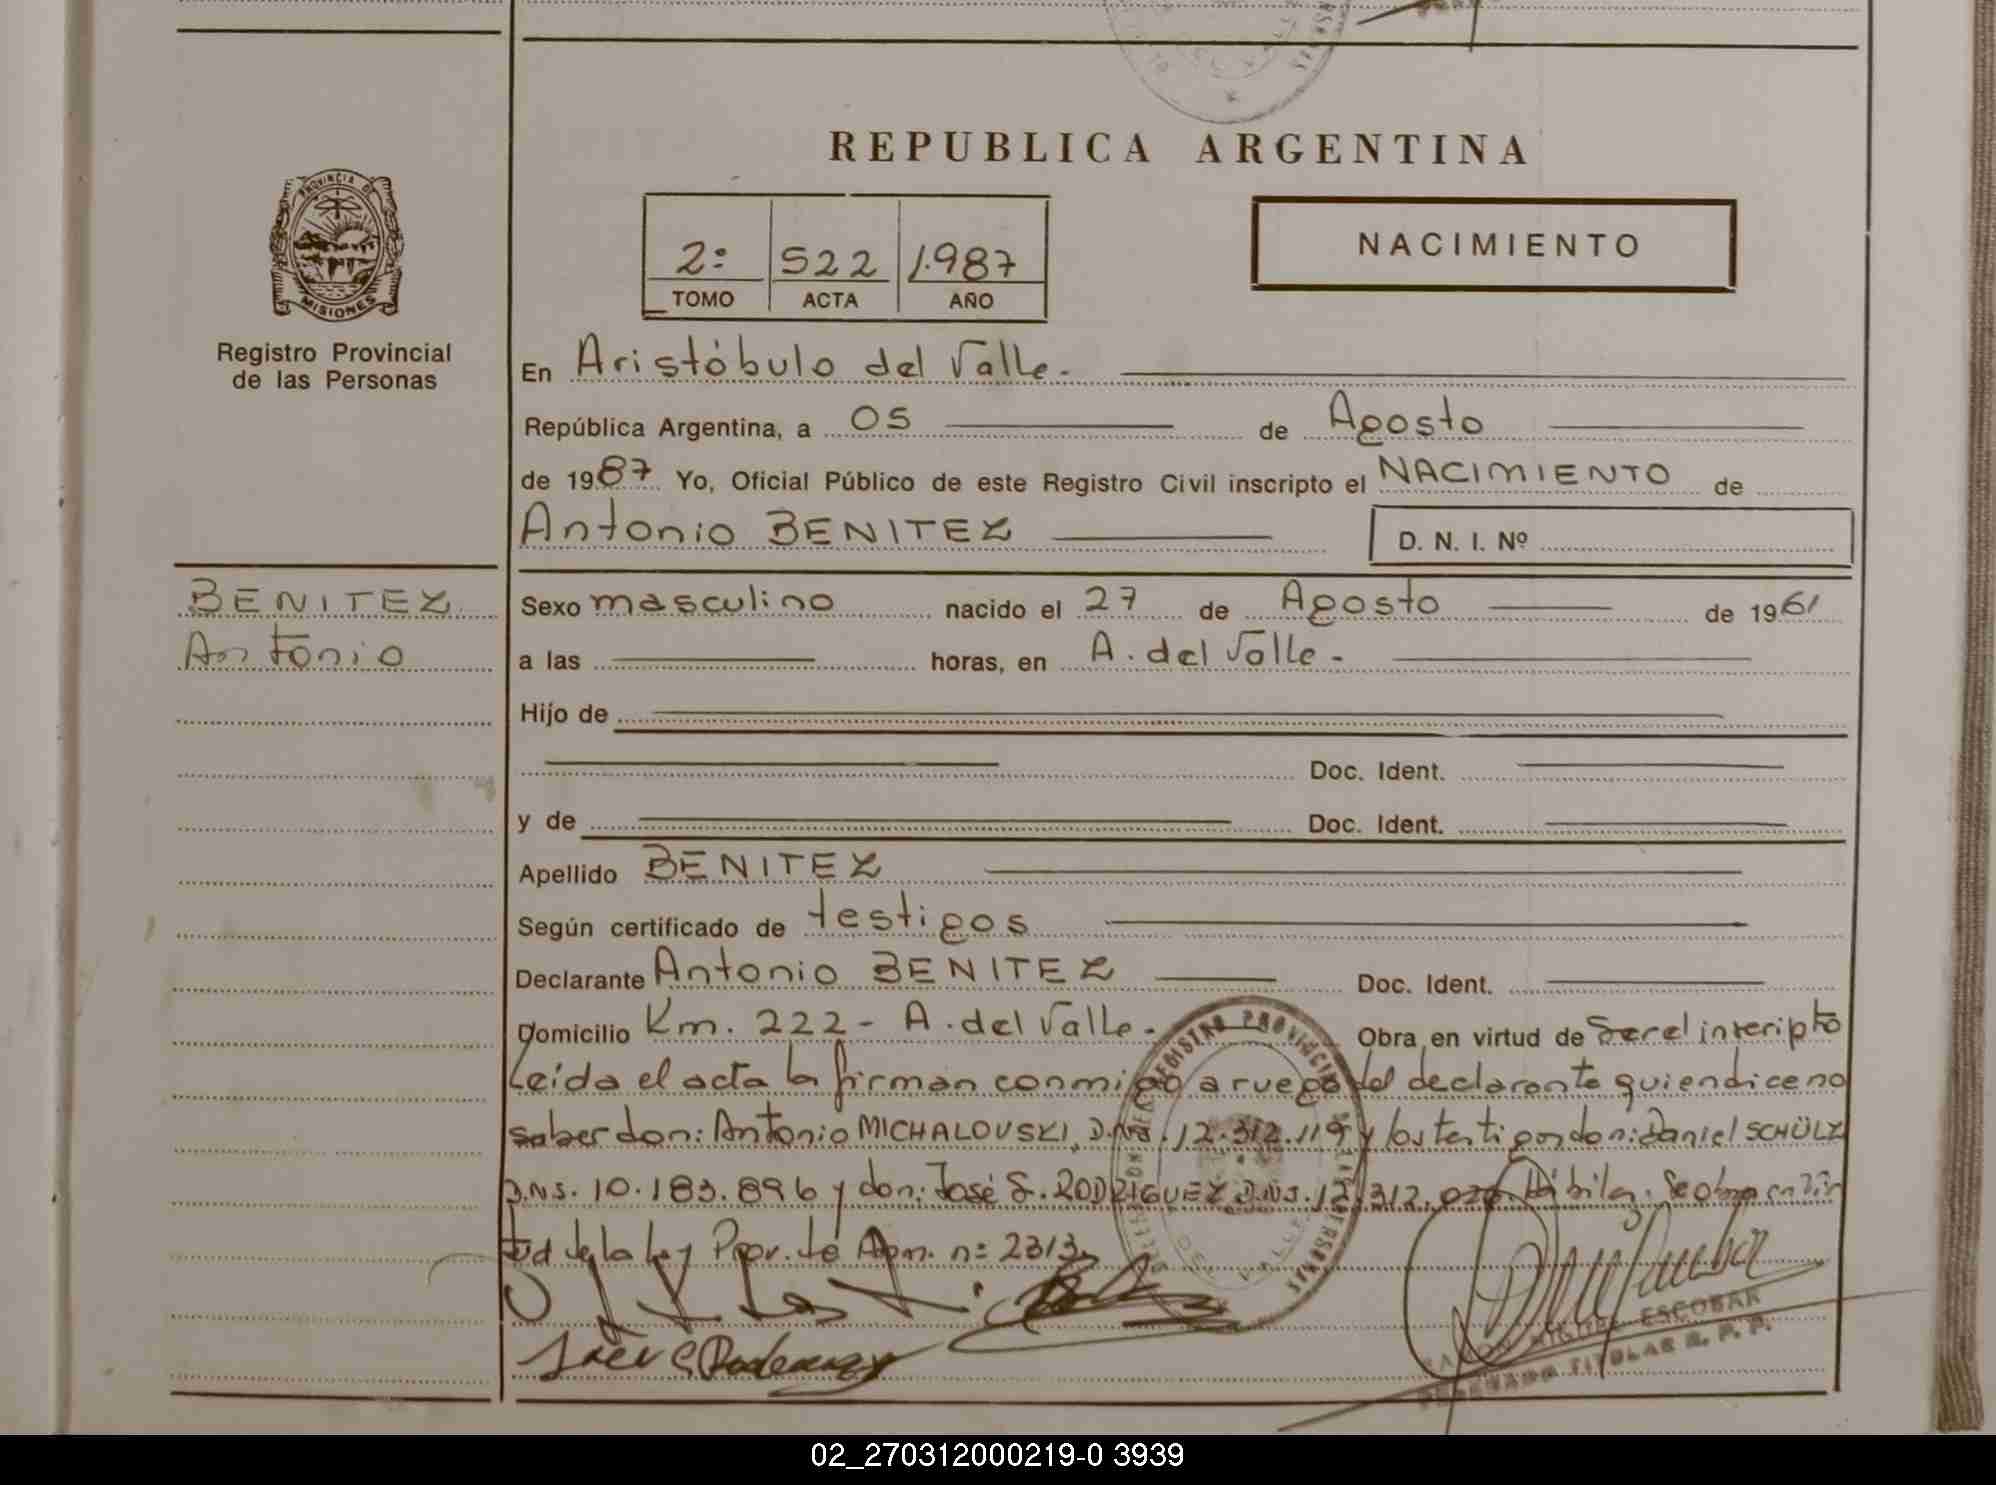 REPUBLICA ARGENTINA
PROVINCIA DE
MISIONES
Registro Provincial
de las Personas
2º 522 1.987
TOMO ACTA AÑO
NACIMIENTO
En Aristóbulo del Valle.
República Argentina, a 05 de Agosto
de 1987 Yo, Oficial Público de este Registro Civil inscripto el NACIMIENTO de
Antonio BENITEZ D. N. I. Nº
BENITEZ
Antonio
Sexo masculino nacido el 27 de Agosto de 1961
a las horas, en A. del Valle.
Hijo de
Doc. Ident.
y de Doc. Ident.
Apellido BENITEZ
Según certificado de testigos
Declarante Antonio BENITEZ Doc. Ident.
Domicilio Km. 222 - A. del Valle. Obra en virtud de Ser el inscripto
Leída el acta la firman conmigo a ruego del declarante quien dice no
saber don: Antonio MICHALOVSKI, D.N.I. 12.312.119 y los testigos don: Daniel SCHÜLZ
D.N.I. 10.183.896 y don: José S. RODRIGUEZ D.N.I. 12.312. Hábiles. Se obra en vir
tud de la Ley Prov. de Adm. nº 2313
REGISTRO PROVINCIAL
ESCOBAR
TITULAR R. P. P.
02_270312000219-0 3939